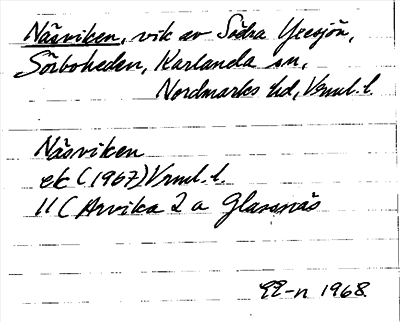 Näsviken, vik av Södra Yresjön,
Sörboheden, Karlanda sn,
Nordmarks hd, Vrml. l.
Näsviken
ek (1967) Vrml. l.
11 ( Arvika 2 a Glassnäs
EE-n 1968